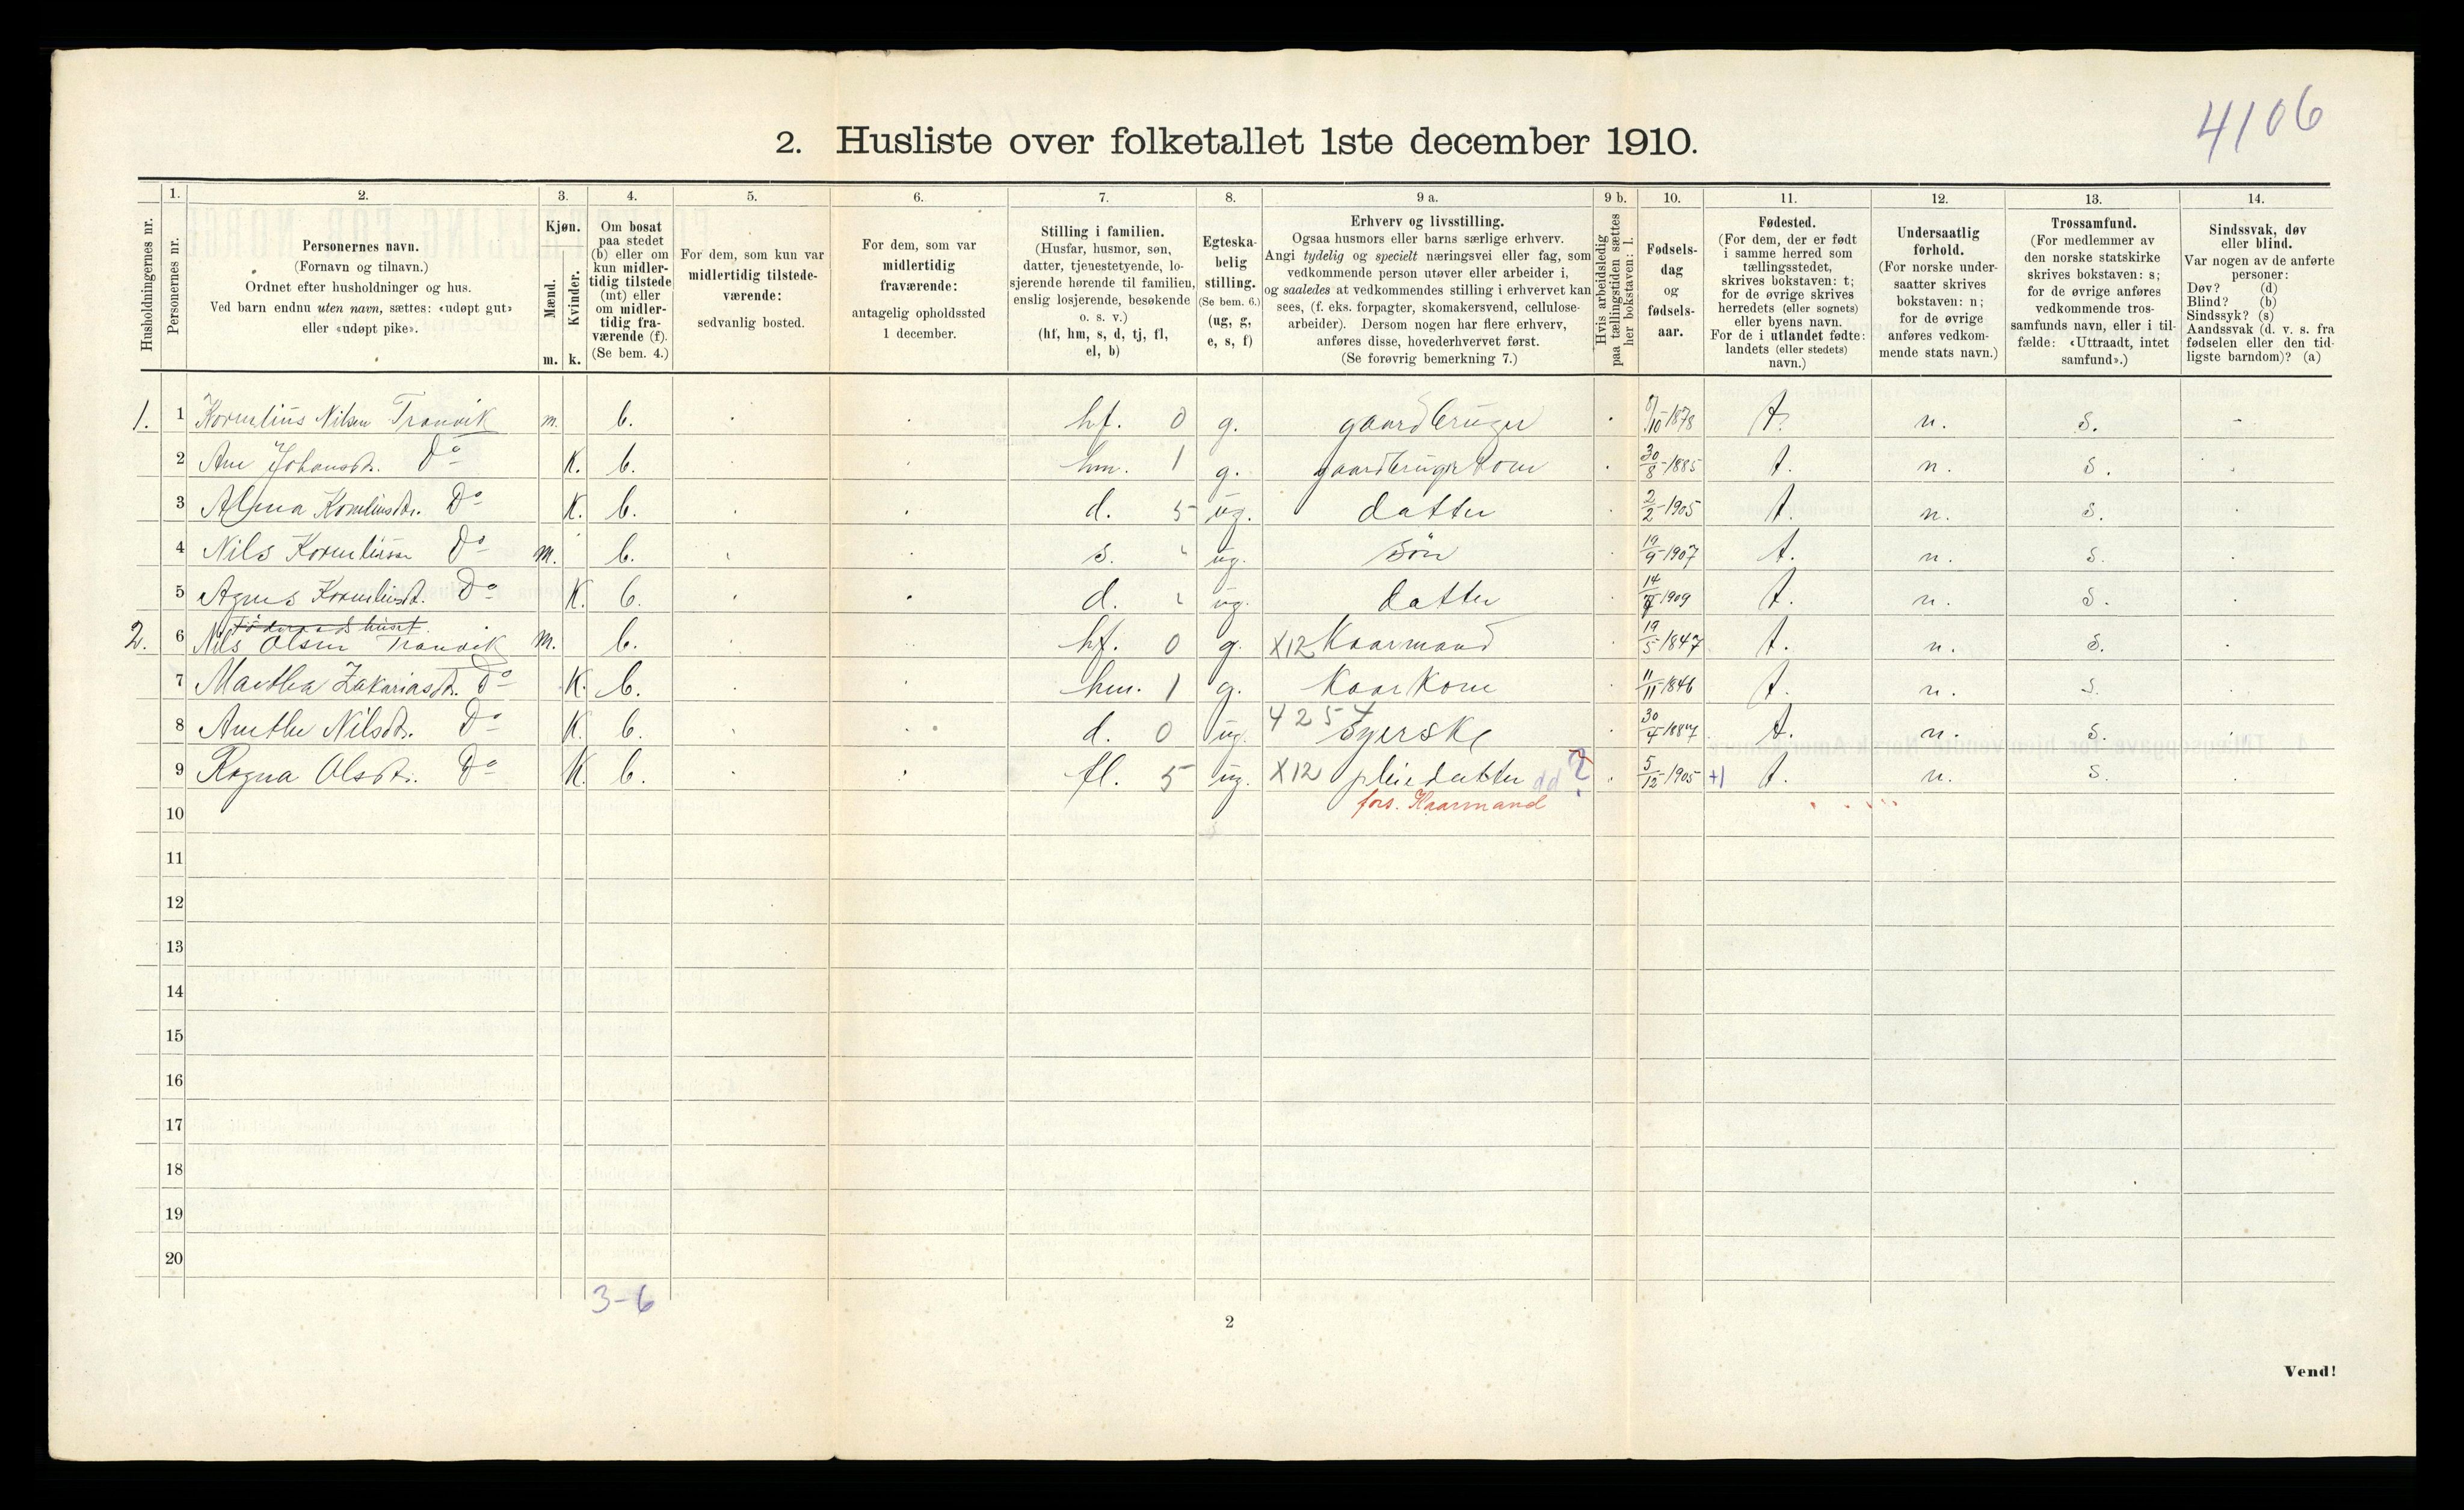 4106
2. Husliste over folketallet 1ste december 1910.
Husholdningernes nr.
1. Personernes nr.
2. Personernes navn.
(Fornavn og tilnavn.)
Ordnet efter husholdninger og hus.
Ved barn endnu uten navn, sættes: «udøpt gut»
eller «udøpt pike».
3. Kjøn.
Mænd. m.
Kvinder. k.
4. Om bosat
paa stedet
(b) eller om
kun midler-
tidig tilstede
(mt) eller
om midler-
tidig fra-
værende (f).
(Se bem. 4.)
5. For dem, som kun var
midlertidig tilstede-
værende:
sedvanlig bosted.
6. For dem, som var
midlertidig
fraværende:
antagelig opholdssted
1 december.
7. Stilling i familien.
(Husfar, husmor, søn,
datter, tjenestetyende, lo-
sjerende hørende til familien,
enslig losjerende, besøkende
o. s. v.)
(hf, hm, s, d, tj, fl,
el, b)
8. Egteska-
belig
stilling.
(Se bem. 6.)
(ug, g,
e, s, f)
9 a. Erhverv og livsstilling.
Ogsaa husmors eller barns særlige erhverv.
Angi tydelig og specielt næringsvei eller fag, som
vedkommende person utøver eller arbeider i,
og saaledes at vedkommendes stilling i erhvervet kan
sees, (f. eks. forpagter, skomakersvend, cellulose-
arbeider). Dersom nogen har flere erhverv,
anføres disse, hovederhvervet først.
(Se forøvrig bemerkning 7.)
9 b. Hvis arbeidsledig
paa tællingstiden sættes
her bokstaven: l.
10. Fødsels-
dag
og
fødsels-
aar.
11. Fødested.
(For dem, der er født
i samme herred som
tællingsstedet,
skrives bokstaven: t;
for de øvrige skrives
herredets (eller sognets)
eller byens navn.
For de i utlandet fødte:
landets (eller stedets)
navn.)
12. Undersaatlig
forhold.
(For norske under-
saatter skrives
bokstaven: n;
for de øvrige
anføres vedkom-
mende stats navn.)
13. Trossamfund.
(For medlemmer av
den norske statskirke
skrives bokstaven: s;
for de øvrige anføres
vedkommende tros-
samfunds navn, eller i til-
fælde: «Uttraadt, intet
samfund».)
14. Sindssvak, døv
eller blind.
Var nogen av de anførte
personer:
Døv? (d)
Blind? (b)
Sindssyk? (s)
Aandssvak (d. v. s. fra
fødselen eller den tid-
ligste barndom)? (a)
1. 1 Kornelius Nilsen Tranvik m. b. hf. 0 g. gaardbruger /10-1878 t. n. s. -
2 Ane Johansdtr. Do K. b. hm. 1 g. gaardbrugerkone 30/8-1885 t. n. s.
3 Alma Korneliusdtr. Do K. b. d. 5 ug. datter 2/2-1905 t. n. s.
4 Nils Korneliussen Do m. b. s. " ug. Søn 19/9-1907 t. n. s.
5 Agnes Korneliusdt. Do K. b. d. " ug. datter 14/-1909 t. n. s.
Föderaadshuset
2. 6 Nils Olsen Tranvik m. b. hf. 0 g. X12 Kaarmand 19/5-1847 t. n. s.
7 Martha Zakariasdtr. Do K. b. hm. 1 g. Kaarkone 11/11-1846 t. n. s.
8 Anethe Nilsdtr. Do K. b. d. 0 ug. 4254 Syerske 30/4-1887 t. n. s.
9 Ragna Olsdtr. Do K. b. fl. 5 ug. X12 pleiedatter dd ? 5/12-1905 +1 t. n. s.
fors. Kaarmand
10
11
12
13
14
15
16
17
18
19
20
3-6
2
Vend!